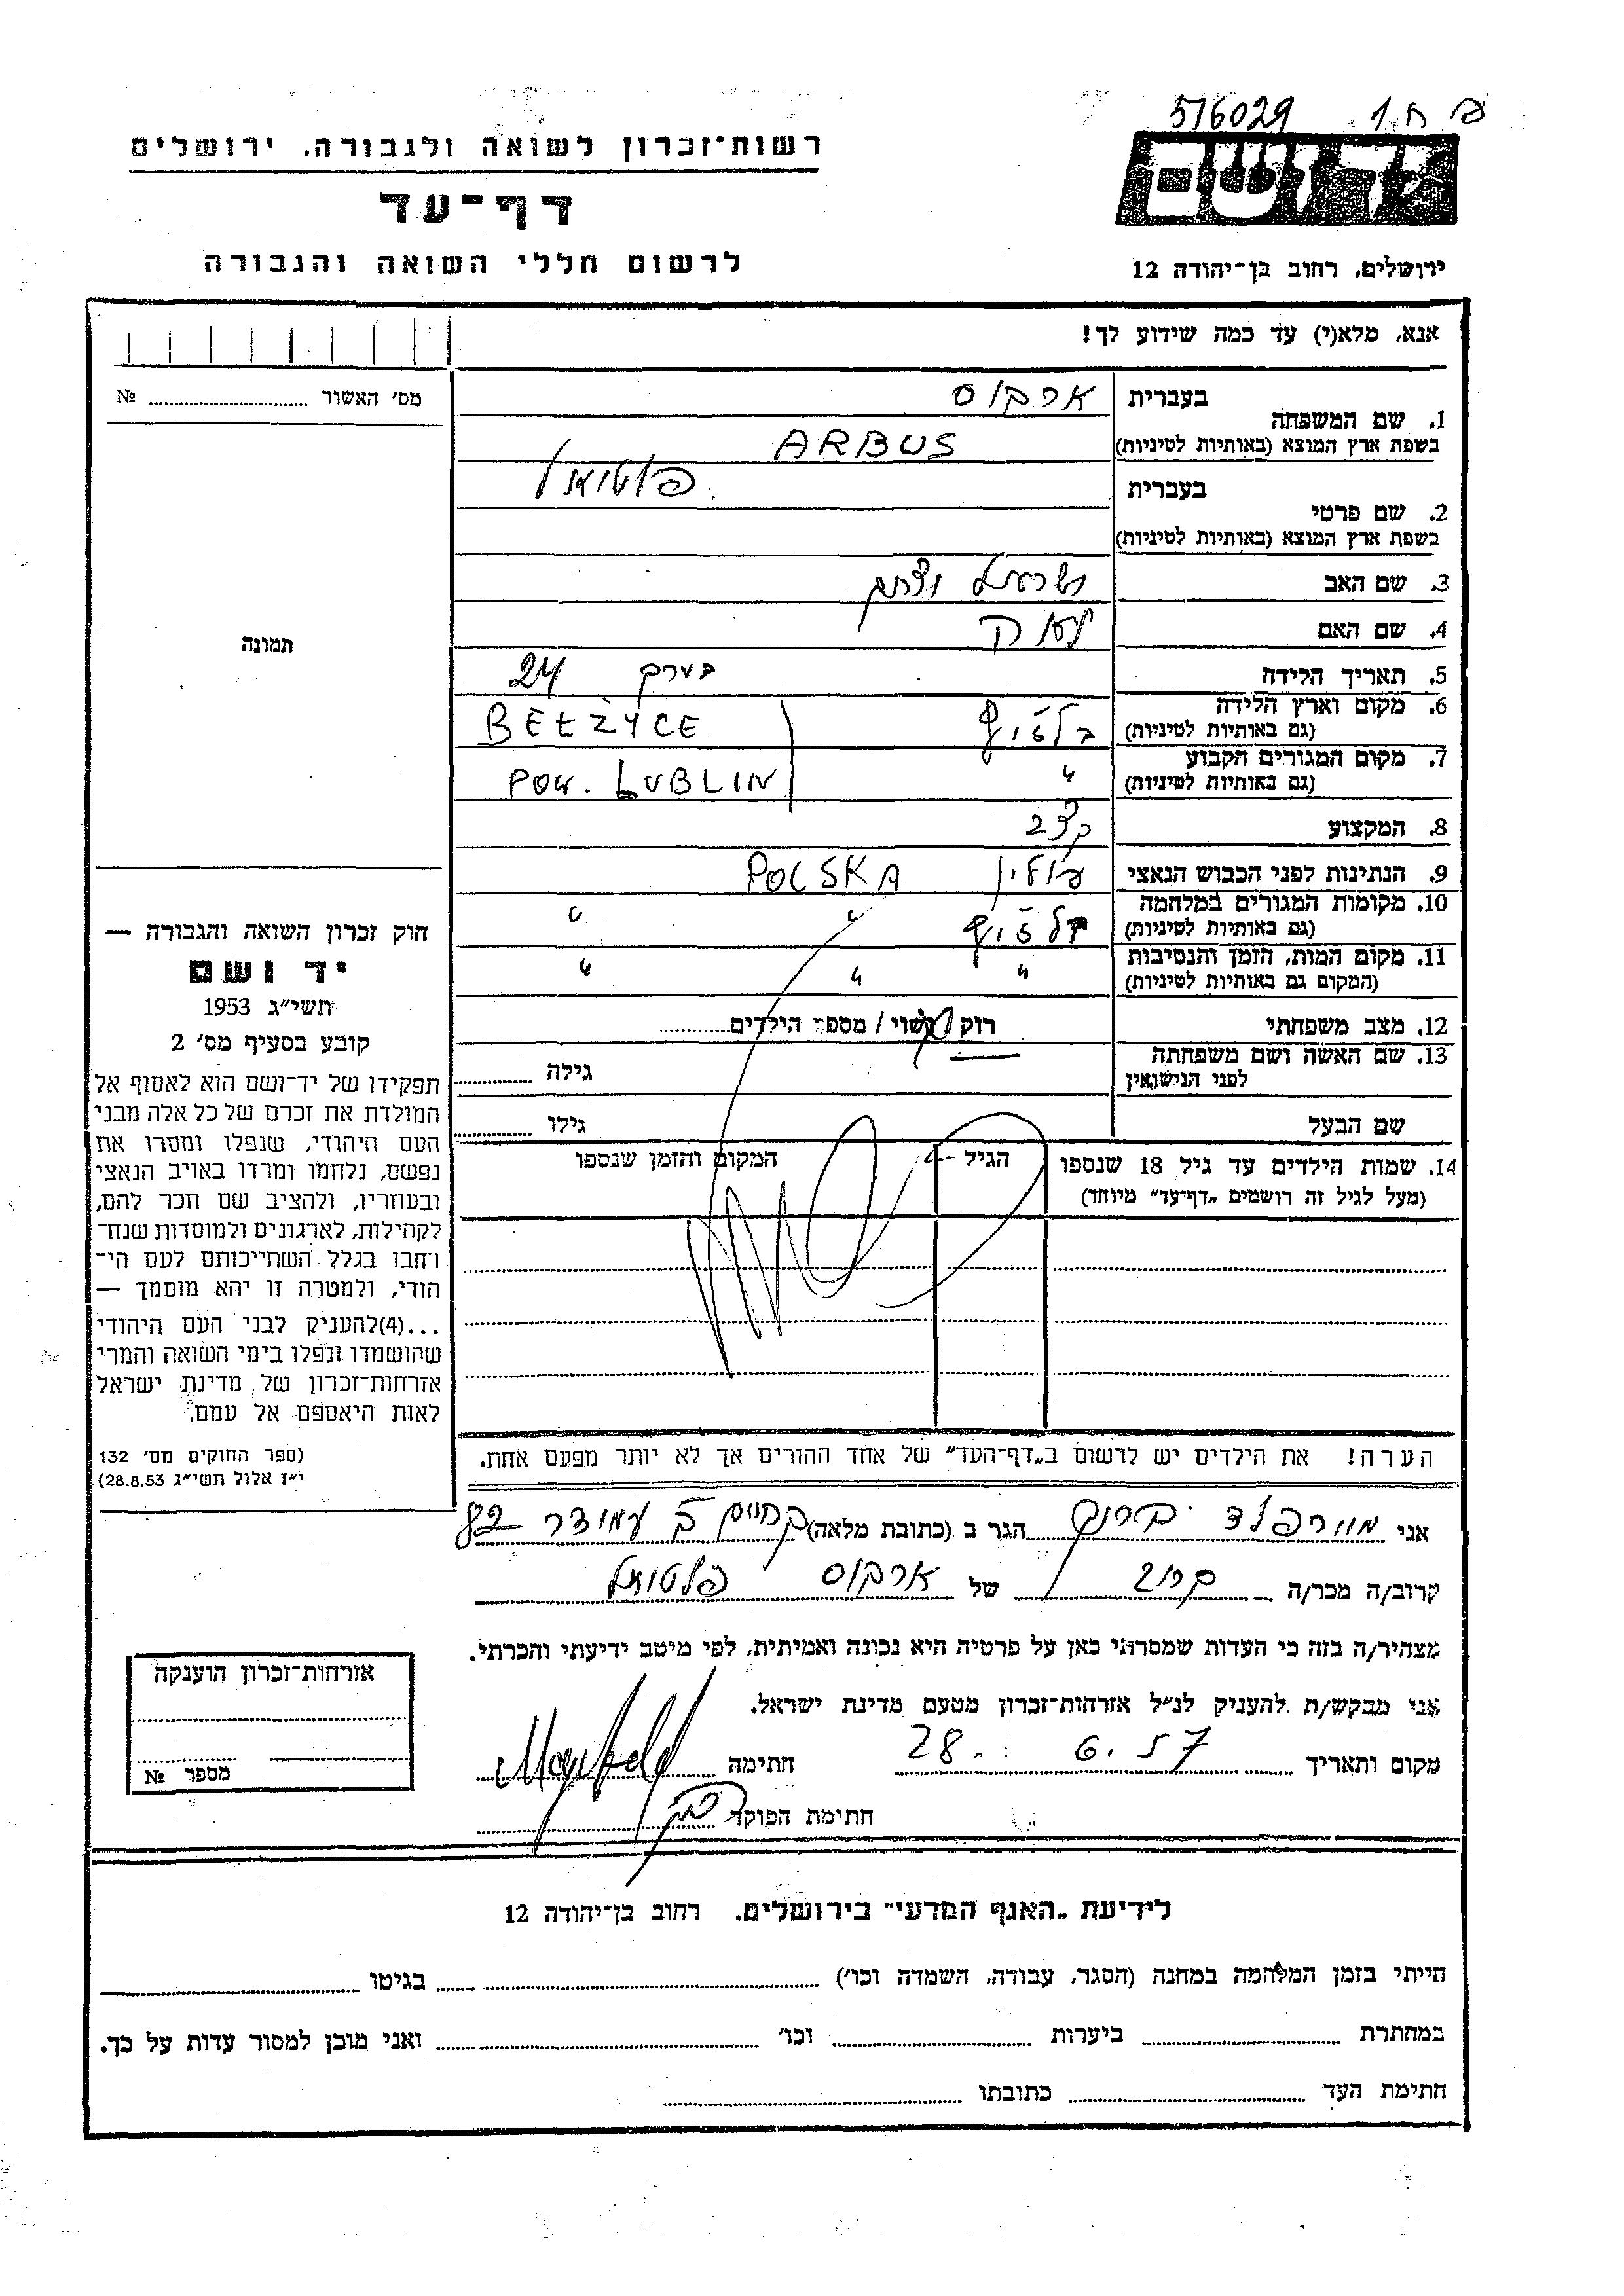 576029 פ ח 1.
רשות־זכרון לשואה ולגבורה, ירושלים
דף־עד
לרשום חללי השואה והגבורה
יד ושם
ירושלים, רחוב בן־יהודה 12
אנא, מלא(י) עד כמה שידוע לך!
מס׳ האשור № ........
1. שם המשפחה בעברית ארבוס
בשפת ארץ המוצא (באותיות לטיניות) ARBUS
2. שם פרטי בעברית פלטיאל
בשפת ארץ המוצא (באותיות לטיניות)
3. שם האב ישראל
4. שם האם
5. תאריך הלידה בערך 24
6. מקום וארץ הלידה (גם באותיות לטיניות) BEŁŻYCE
7. מקום המגורים הקבוע (גם באותיות לטיניות) " POW. LUBLIN
8. המקצוע קצב
9. הנתינות לפני הכבוש הנאצי פולין POLSKA
10. מקומות המגורים במלחמה (גם באותיות לטיניות) " "
11. מקום המות, הזמן והנסיבות (המקום גם באותיות לטיניות) " " "
12. מצב משפחתי רוק / נשוי / מספר הילדים........
13. שם האשה ושם משפחתה לפני הנישואין גילה ........
שם הבעל גילו ........
14. שמות הילדים עד גיל 18 שנספו (מעל לגיל זה רושמים „דף־עד״ מיוחד) הגיל המקום והזמן שנספו
תמונה
חוק זכרון השואה והגבורה —
יד ושם
תשי״ג 1953
קובע בסעיף מס׳ 2
תפקידו של יד־ושם הוא לאסוף אל
המולדת את זכרם של כל אלה מבני
העם היהודי, שנפלו ומסרו את
נפשם, נלחמו ומרדו באויב הנאצי
ובעוזריו, ולהציב שם וזכר להם,
לקהילות, לארגונים ולמוסדות שנח־
רחבו בגלל השתייכותם לעם הי־
הודי, ולמטרה זו יהא מוסמך —
...(4)להעניק לבני העם היהודי
שהושמדו ונפלו בימי השואה והמרי
אזרחות־זכרון של מדינת ישראל
לאות היאספם אל עמם.
(ספר החוקים מס׳ 132
י״ז אלול תשי״ג 28.8.53)
הערה! את הילדים יש לרשום ב„דף־העד״ של אחד ההורים אך לא יותר מפעם אחת.
אני מוירפלד ברוך הגר ב (כתובת מלאה) 82
קרוב/ה מכר/ה קרוב של ארבוס פלטיאל
מצהיר/ה בזה כי העדות שמסרתי כאן על פרטיה היא נכונה ואמיתית, לפי מיטב ידיעתי והכרתי.
אני מבקש/ת להעניק לנ״ל אזרחות־זכרון מטעם מדינת ישראל.
מקום ותאריך 28. 6. 57 חתימה
חתימת הפוקד
אזרחות־זכרון הוענקה
מספר №
לידיעת „האגף המדעי״ בירושלים, רחוב בן־יהודה 12
הייתי בזמן המלחמה במחנה (הסגר, עבודה, השמדה וכו׳) ........ בגיטו ........
במחתרת ........ ביערות ........ וכו׳ ........ ואני מוכן למסור עדות על כך.
חתימת העד ........ כתובתו ........